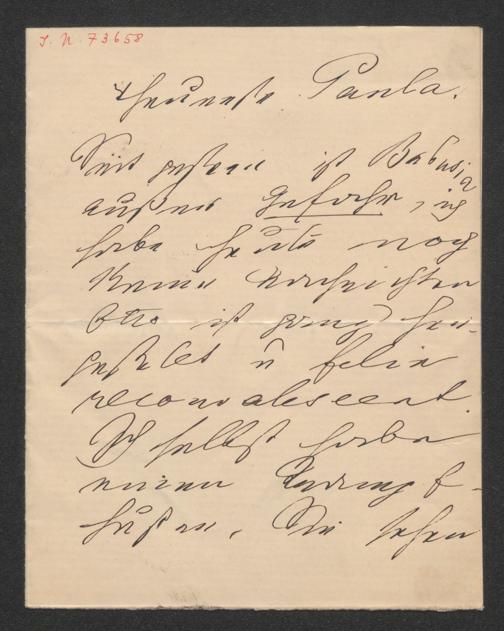 J. N. 73658
Theuerste Paula.
Seit gestern ist Babusia
außer Gefahr, ich
habe heute noch
keine Nachrichten
Otto ist ganz her-
gestellt u Felix
reconvalescent.
Ich selbst habe
einen Krampf-
husten. Sie sehen